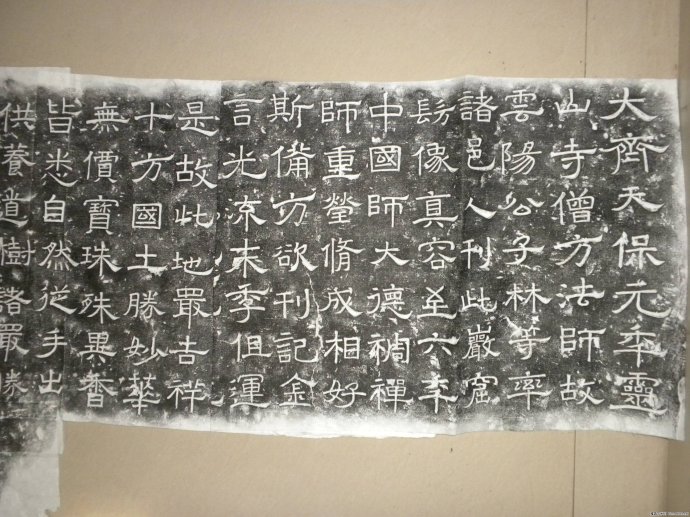 大齊天保元年靈
山寺僧方法師故
雲陽公子林等率
諸邑人刊此巖窟
髣像真容至六年
中國師大德稠禪
師重瑩脩成相好
斯備方欲刊記金
言光流末季但運
是故此地最吉祥
十方國土勝妙華
無價寶珠殊異香
皆悉自然從手出
供養道樹諸最勝